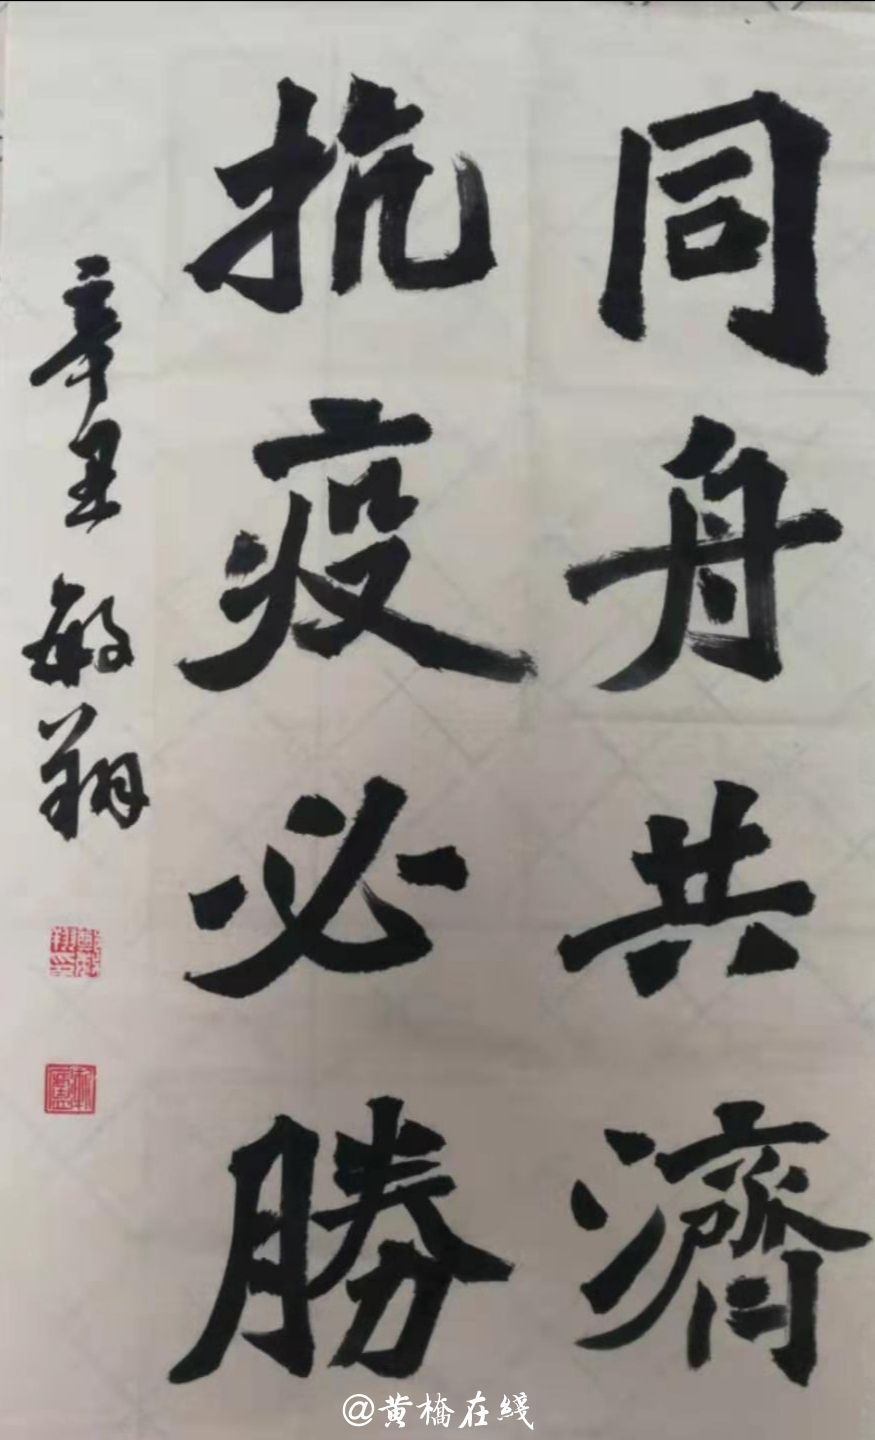 同舟共濟
抗疫必勝
辛丑 敏翔
@黄橋在綫